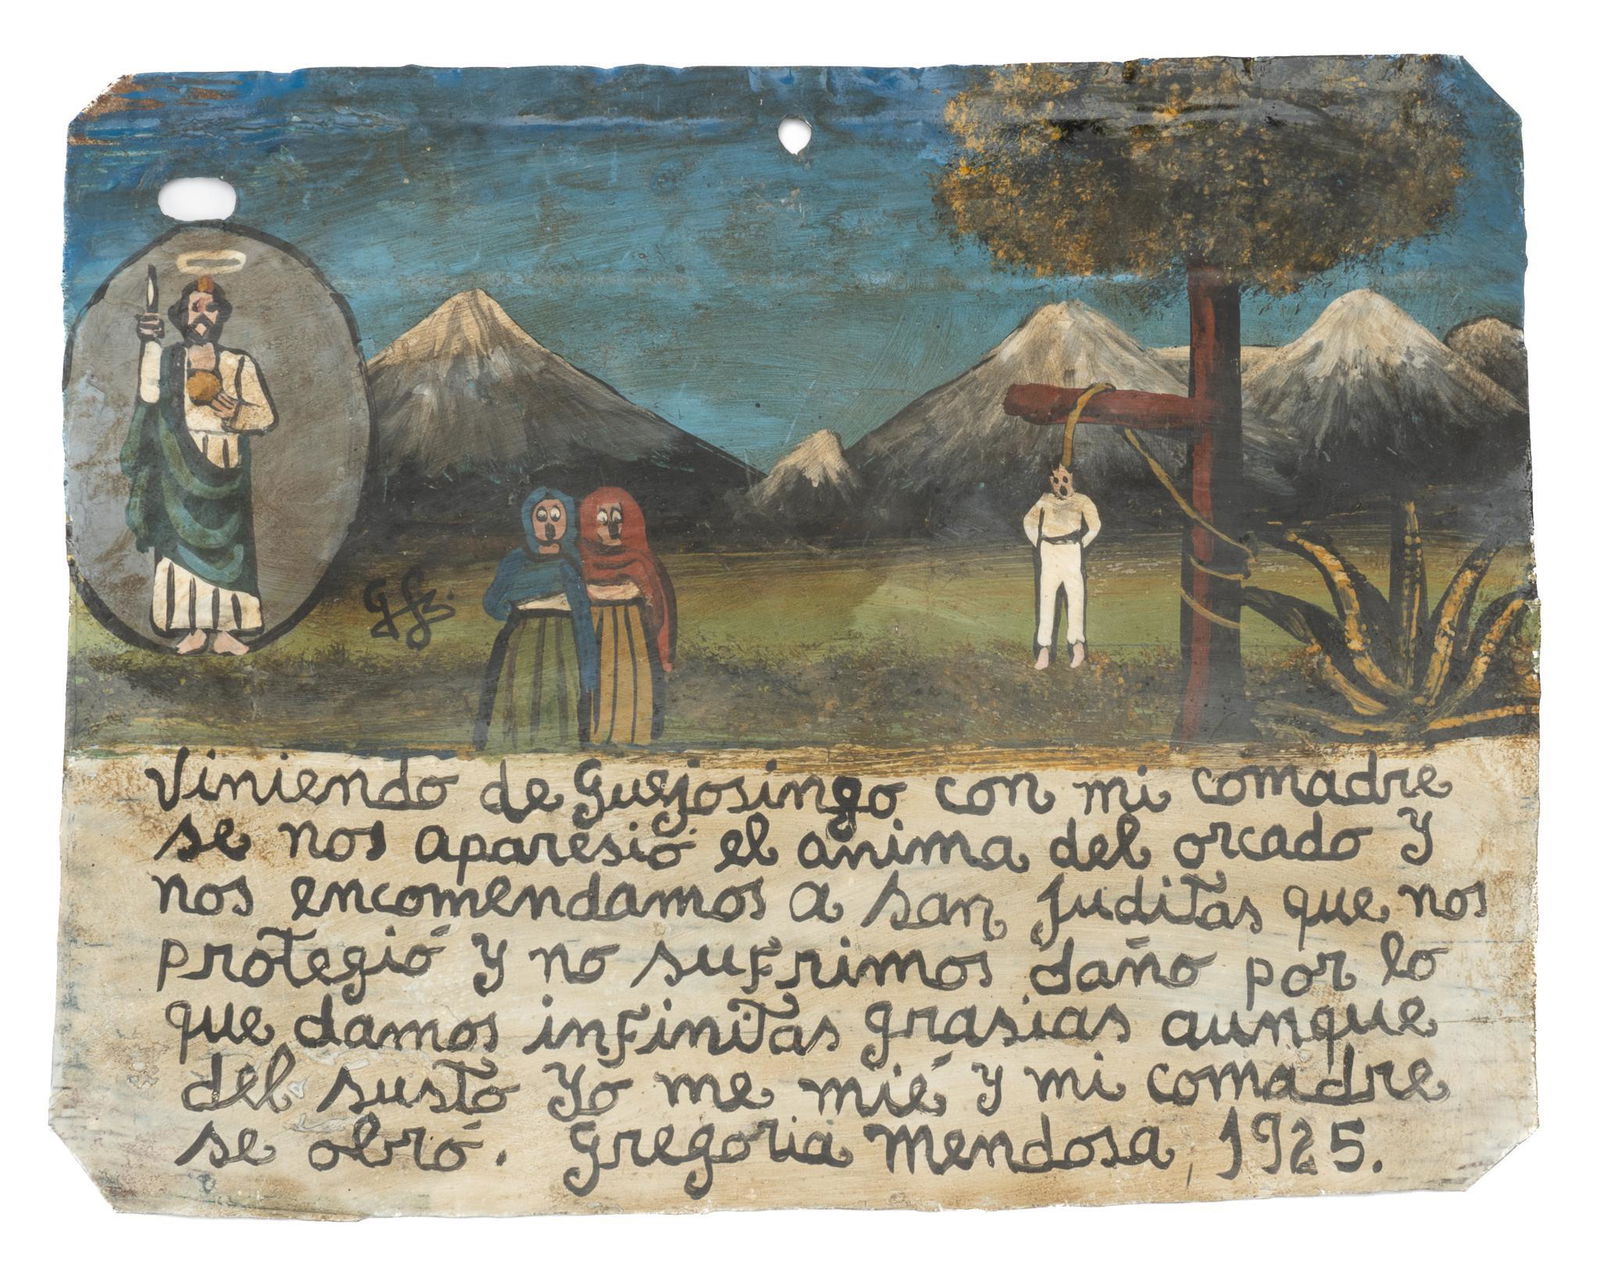 Viniendo de Guejosingo con mi comadre
se nos aparesió el anima del orcado y
nos encomendamos a San Juditas que nos
protegió y no sufrimos daño por lo
que damos infinitas grasias aunque
del susto Yo me mié y mi comadre
se obró. Gregoria Mendosa, 1925.